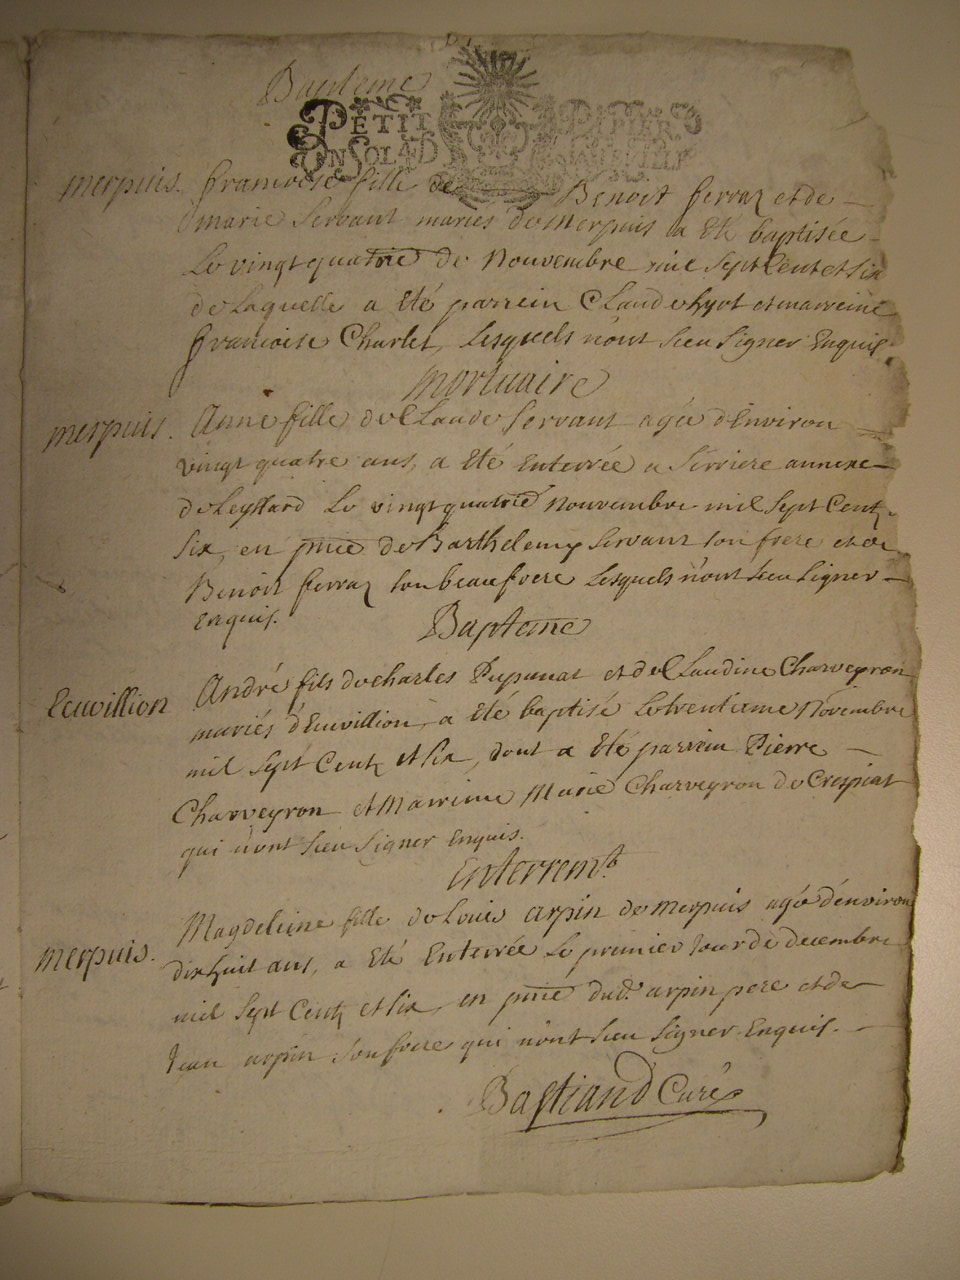 Bapteme
PETIT PAPIER
UN SOL 4 D LA FEUILLE
merpuis. francoise fille de Benoit ferraz et de
marie Servant maries de Merpuis a Eté baptisée
Le vingt quatrie de Nouvembre mil Sept Cent et Six
de Laquelle a Eté parrein Claude hyot et marreine
francoise Charlet, Lesquels n'ont Sceu Signer Enquis
Mortuaire
merpuis. Anne fille de Claude Servant agée d'Environ
vingt quatre ans, a Eté Enterrée a Serriere annexe
de Leyssard Le vingt quatrie Nouvembre mil Sept Centz
Six, en pnce de Barthelemy Servant son frere et de
Benoit ferraz son beaufrere Lesquels n'ont Sceu Signer
Enquis.
Bapteme
Leuvillion André fils de charles Pupunat et de Claudine Charveyron
mariés d'Euvillion, a Eté baptisé Le trentieme Novembre
mil Sept Centz et Six, dont a Eté parrein Pierre
Charveyron et Marreine Marie Charveyron de Crespiat
qui n'ont Sceu Signer Enquis.
Enterremt.
merpuis. Magdeleine fille de Louis arpin de merpuis agée d'environ
dixhuit ans, a Eté Enterrée Le premier Jour de decembre
mil Sept Centz et Six, en pnce dud. arpin pere et de
Jean arpin Son frere qui n'ont Sceu Signer Enquis.
Bastiand Curé